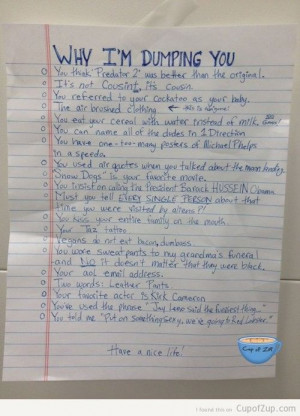 WHY I'M DUMPING YOU
You think "Predator 2" was better than the original.
It's not Cousint, it's cousin.
You referred to your cockatoo as your baby.
The air brushed clothing. ← this is awesome!
You eat your cereal with water instead of milk.
You can name all of the dudes in 1 Direction
You have one-too-many posters of Michael Phelps
in a speedo.
You used air quotes when you talked about the moon landing
"Snow Dogs" is your favorite movie.
You insist on calling the President Barack HUSSEIN Obama
Must you tell EVERY SINGLE PERSON about that
time you were visited by aliens?!
You kiss your entire family on the mouth
Your Taz tattoo
Vegans do not eat bacon, dumbass
You wore sweatpants to my grandma's funeral
and NO it doesn't matter that they were black.
Your aol email address.
Two words: Leather Pants
Your favorite actor is Kirk Cameron
You've used the phrase "Jay Leno said the funniest thing..."
You told me "Put on something sexy, we're going to Red Lobster."
Have a nice life!
Cup of ZUP
I found this on CupofZup.com